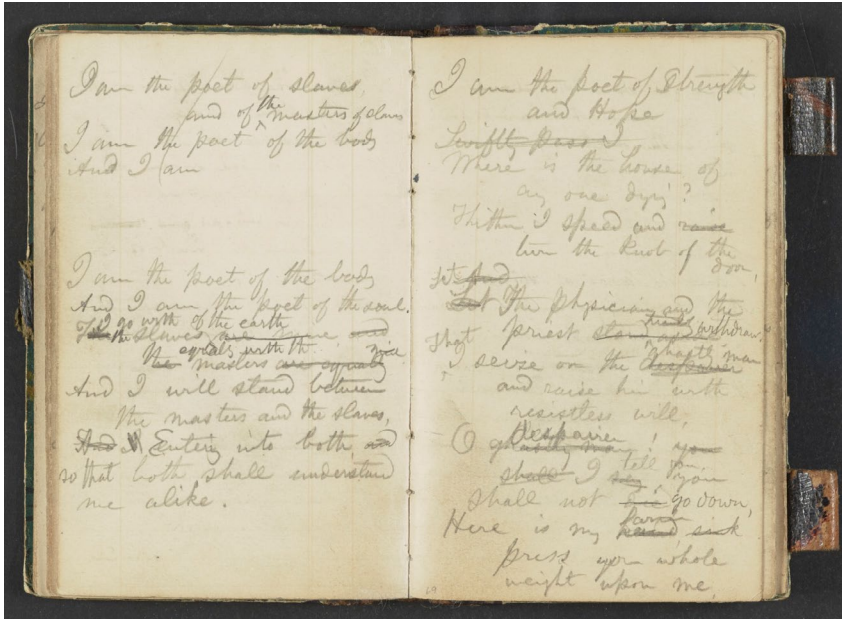 I am the poet of slaves,
and of the masters of slaves
I am the poet of the body
And I am
I am the poet of the body
And I am the poet of the soul.
I go with the slaves of the earth are mine and
The equals with the masters are equally mine
And I will stand between
the masters and the slaves,
And Entering into both, and
so that both shall understand
me alike.
I am the poet of Strength
and Hope
Swiftly pass I
Where is the house of
any one dying?
Thither I speed and raise
turn the knob of the
door,
Let And
Let The physician and the
priest stand timidly withdraw,
That I seize on the ghastly man
and raise him with
resistless will;
O despairer! you
shall I tell you,
shall not die go down,
Here is my hand
press your whole
weight upon me,
69